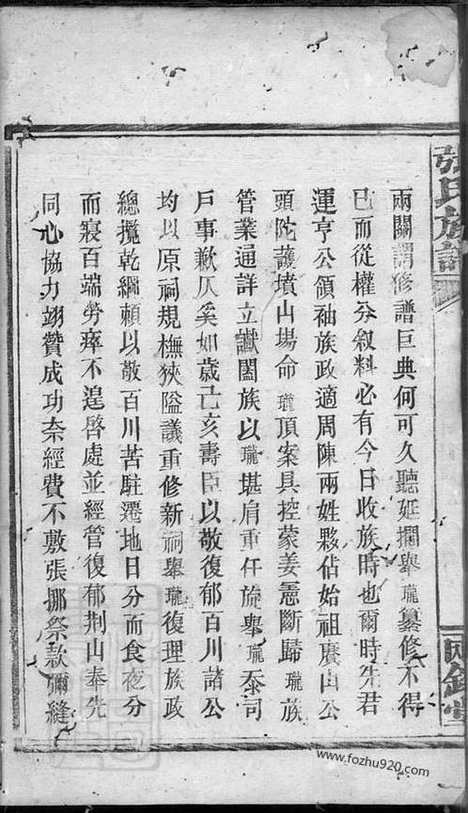 張氏族譜
兩關謂修譜巨典何可久聽延擱舉瓏纂修不得
已而從權分敘料必有今日收族時也爾時先君
運亨公領袖族政適周陳兩姓夥佔始祖廣山公
頭陀護墳山場命瓏頂案具控蒙姜憲斷歸瓏族
管業通詳立讞闔族以瓏堪肩重任旋舉瓏忝司
戶事歉仄奚如歲己亥壽臣以敬復郁百川諸公
均以原祠規橅狹隘議重修新祠舉瓏復理族政
總攬乾綱賴以敬百川苦駐遷地日分而食夜分
而寢百端勞瘁不遑啓處並經管復郁荆山奉先
同心協力翊贊成功奈經費不敷張挪祭款彌縫
www.fozhu920.com